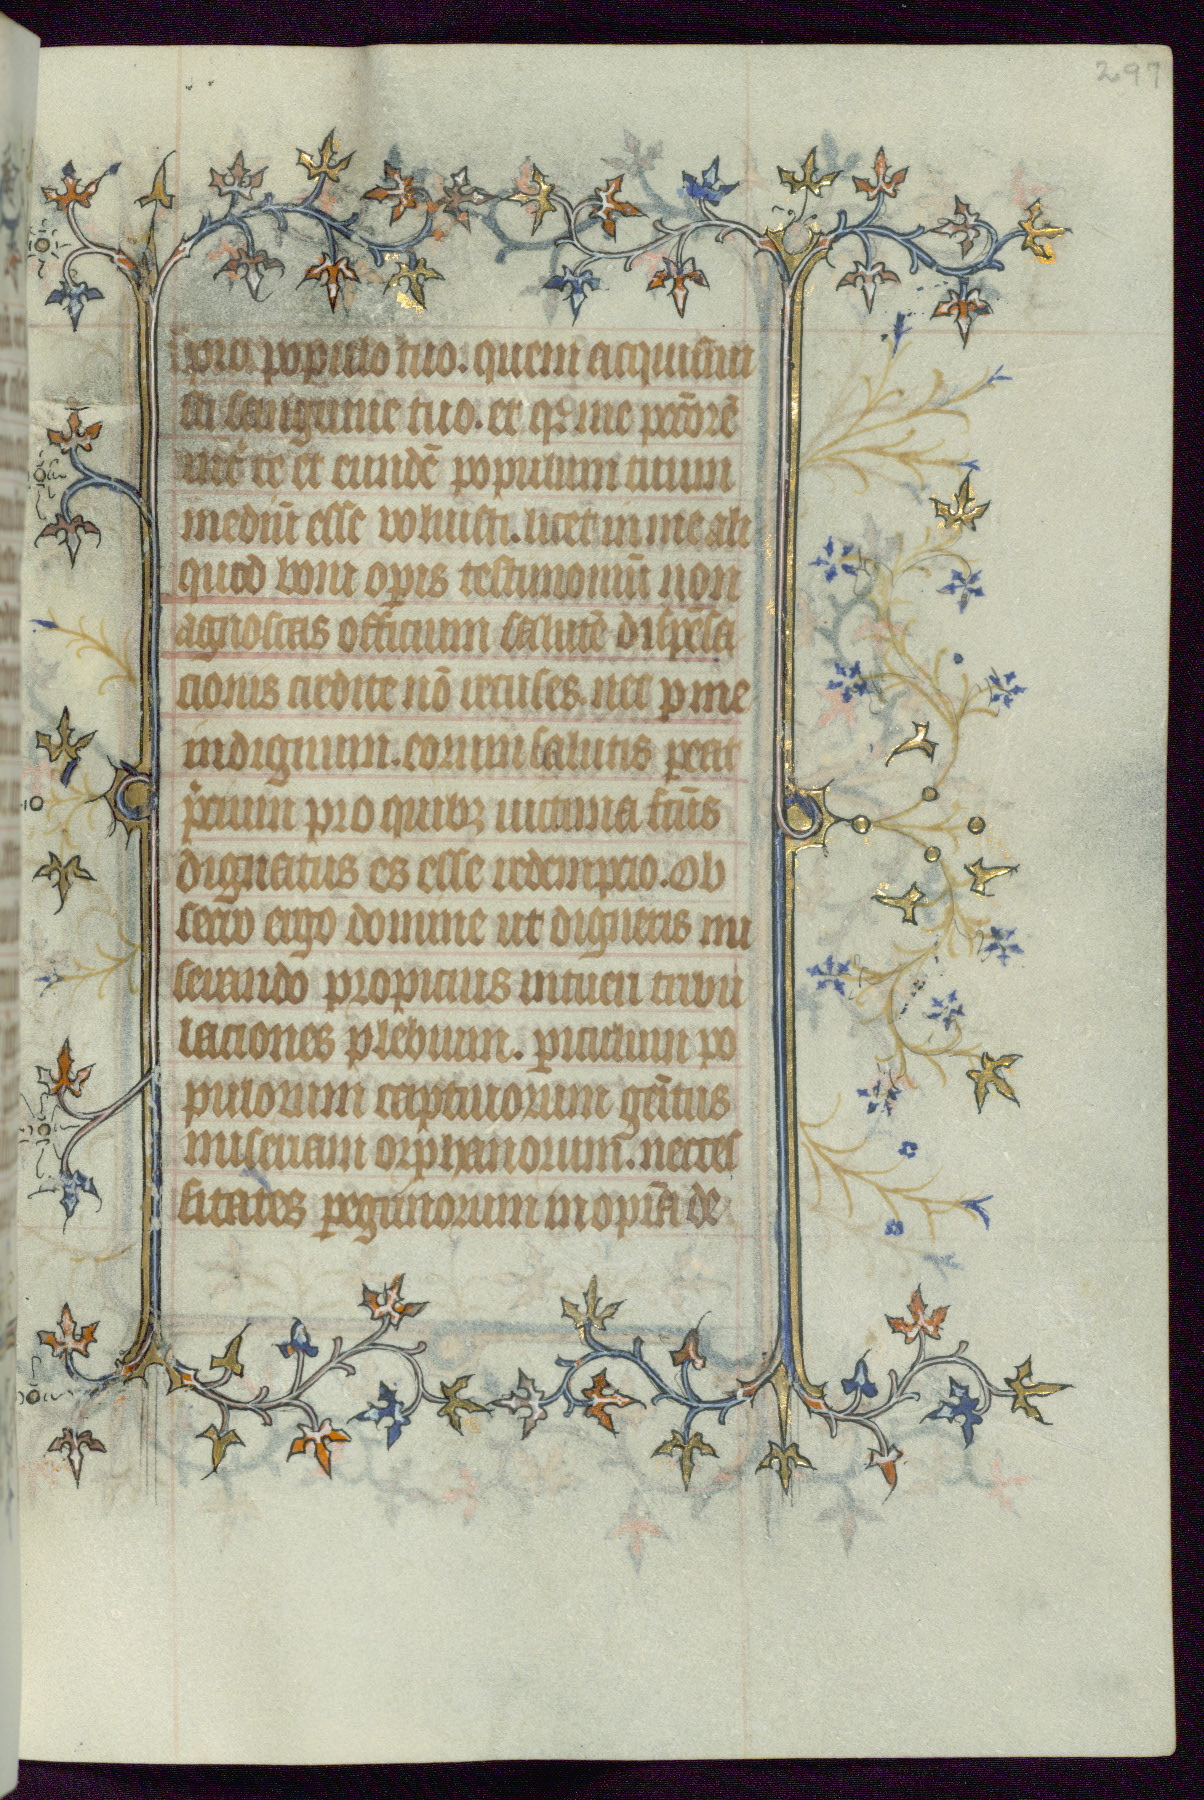 297
pro populo tuo. quem acquisiui
sti sanguine tuo. et q̄ me pctōrē
int̄ te et eundē populum tuum
mediū esse voluisti. licet in me ali
quod boni operis testimoniū non
agnoscas officium salutē dispēsa
cionis credite nō recuses. nec p me
indignum. eorum salutis pereat
p̄cium pro quibꝫ uictima fcūs
dignatus es esse redempcio. Ob
secro ergo domine ut digneris mi
serando propicius intueri tribu
laciones plebium. piculum po
pulorum captiuorum gēitus
miseriam orphanorum. necces
sitates pegrinorum inopiā de